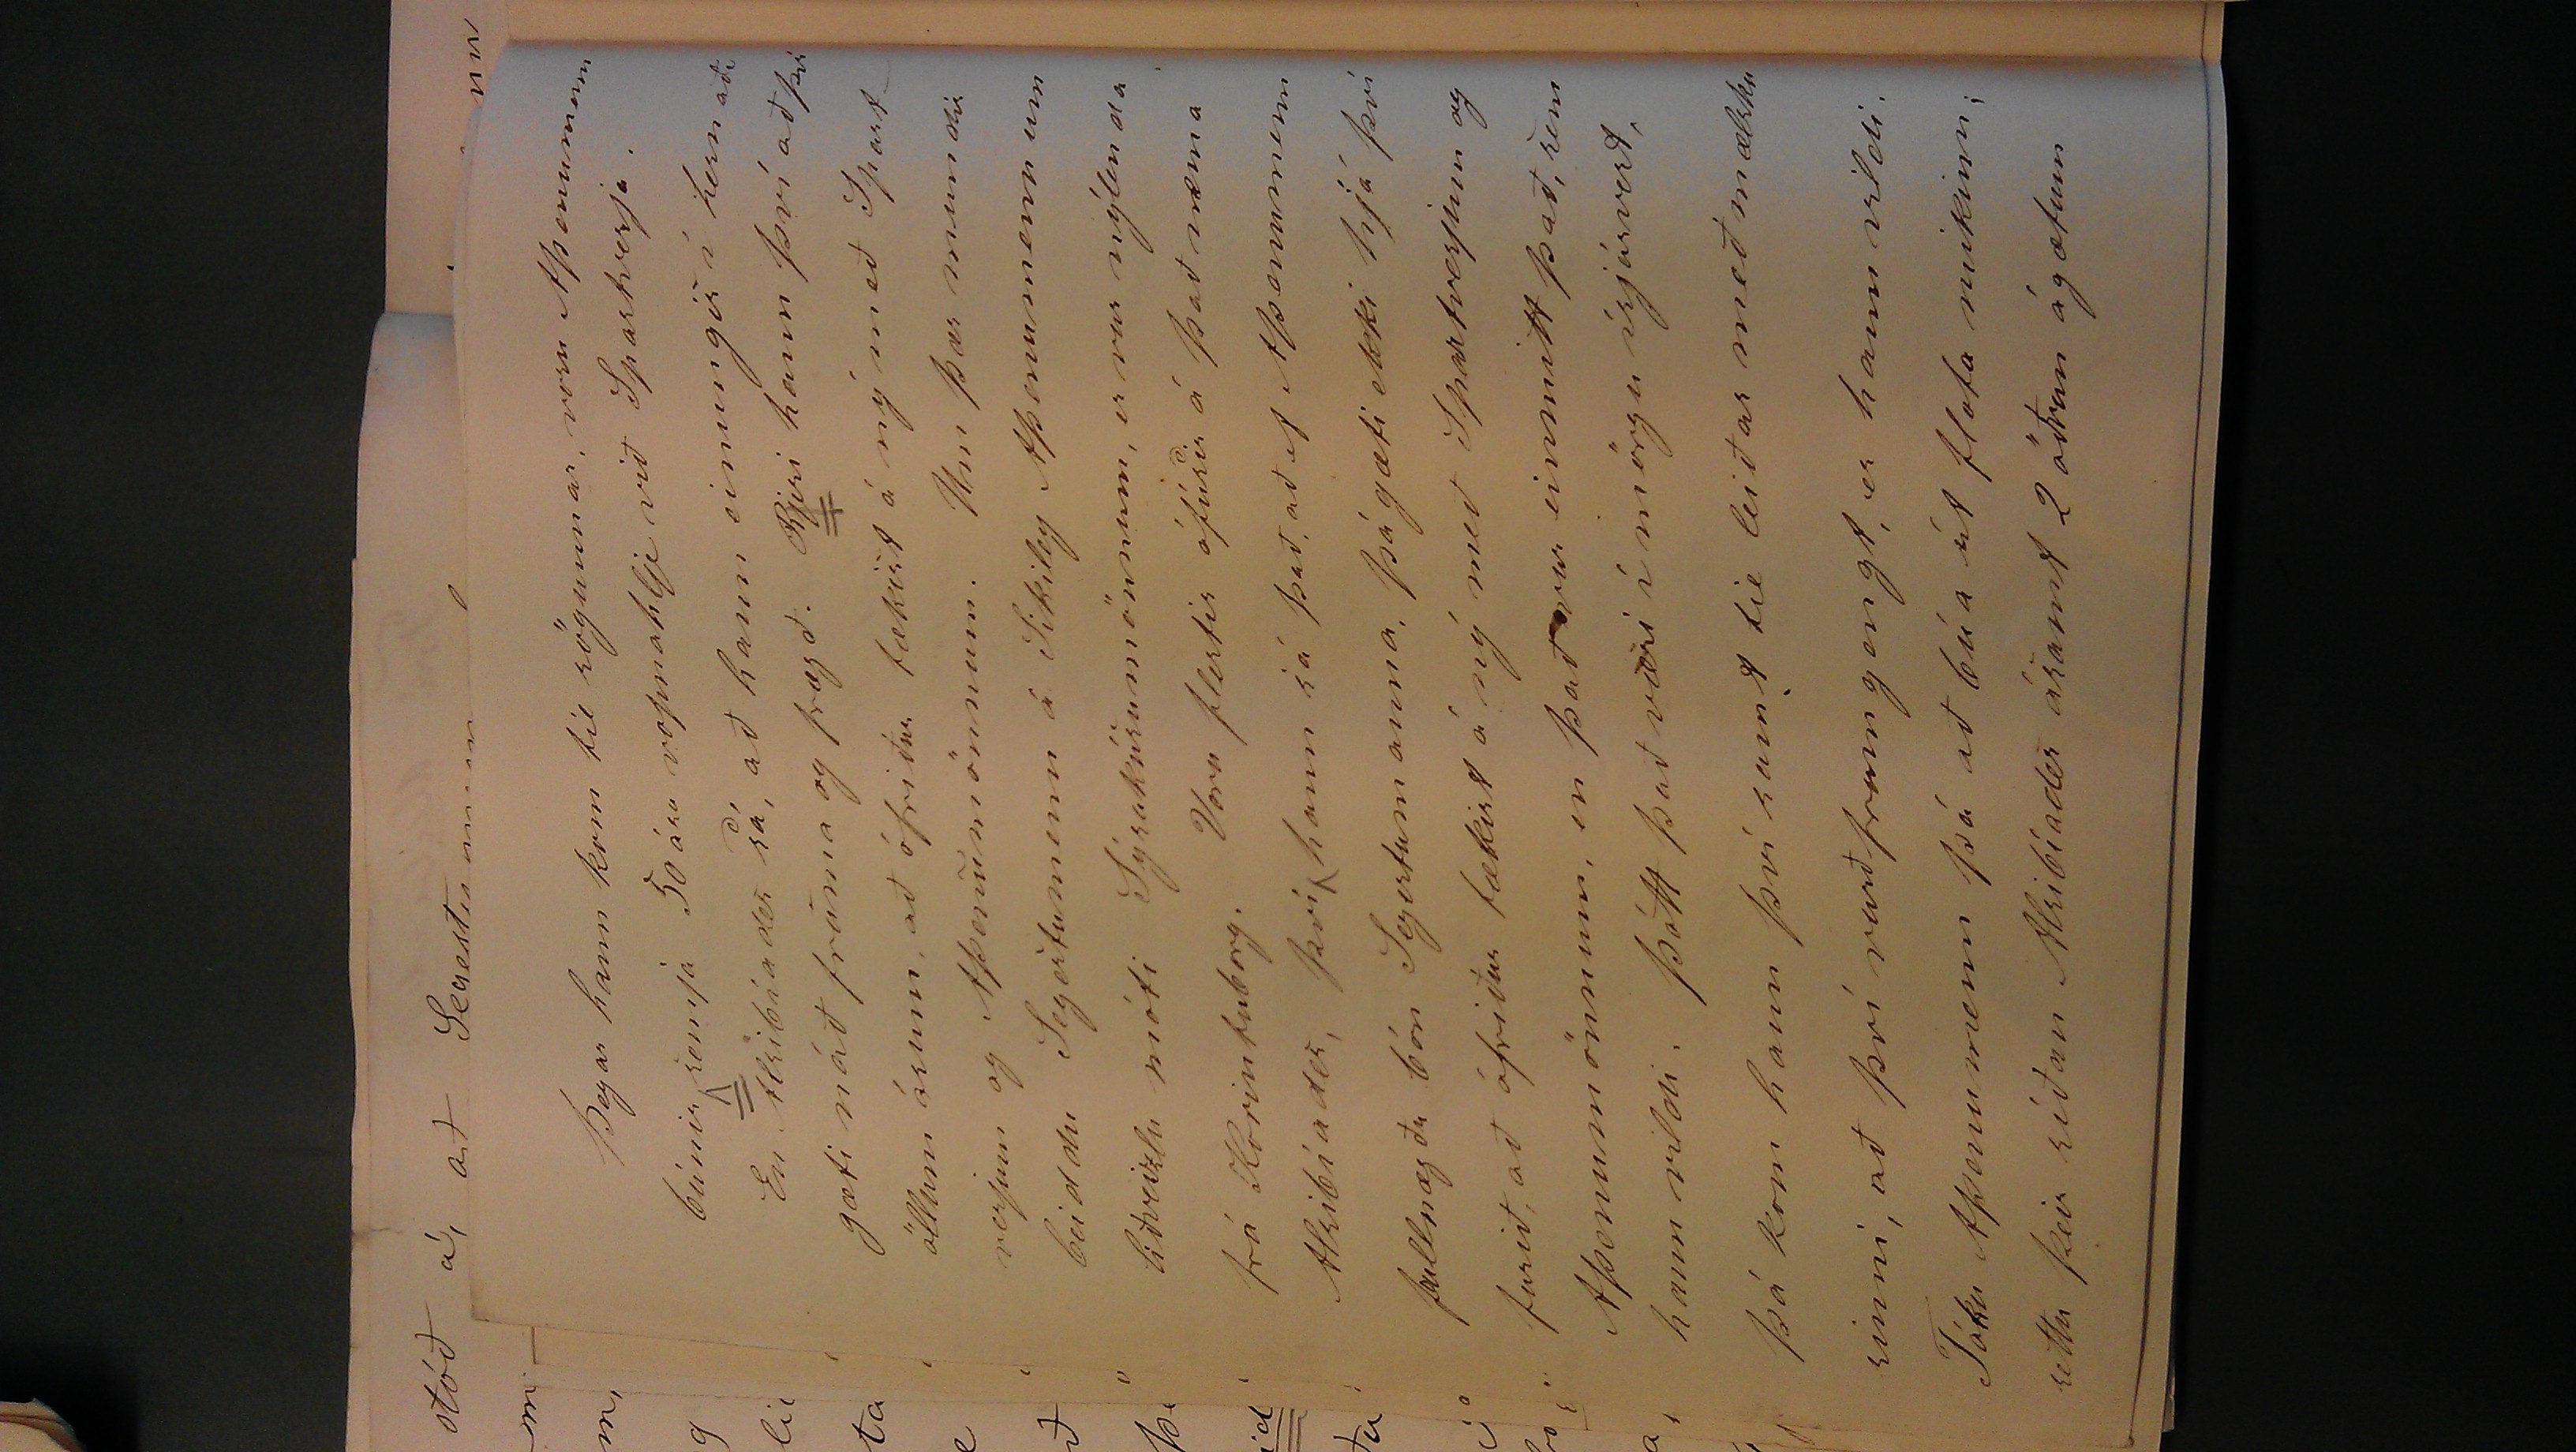 stóð á, að Segestumenn
Þegar hann kom til sögunnar, voru Aþenumenn
búnir semja 50 ára vopnahlje við Spartverja.
En Alkibíades sá, að hann einungis í hernaði
gæti náð fráma og frægð. Rjeri hann því að því
öllum árum, að ófriður tækist á ný með Spart-
verjum og Aþenumönnum. Um þær mundir
beiddu Segestumenn á Sikiley Aþenumenn um
liðveizlu móti Sýrakúsumönnum, er var nýlenda
frá Korintuborg. Voru flestir ófúsir á það nema
Alkibíades, því hann sá það, að ef Aþenumenn
fullnægðu bón Segestumanna, þá gæti ekki hjá því
farið, að ófriður tækist á ný með Spartverjum og
Aþenumönnum, en það var einmitt það, sem
hann vildi. Þótt það væri í mörgu ísjárvert,
þá kom hann því samt til leiðar með mælsku
sinni, að því varð framgengt, er hann vildi.
Tóku Aþenumenn þá að búa út flota mikinn;
settu þeir síðan Alkibíades ásamt 2 öðrum ágætum